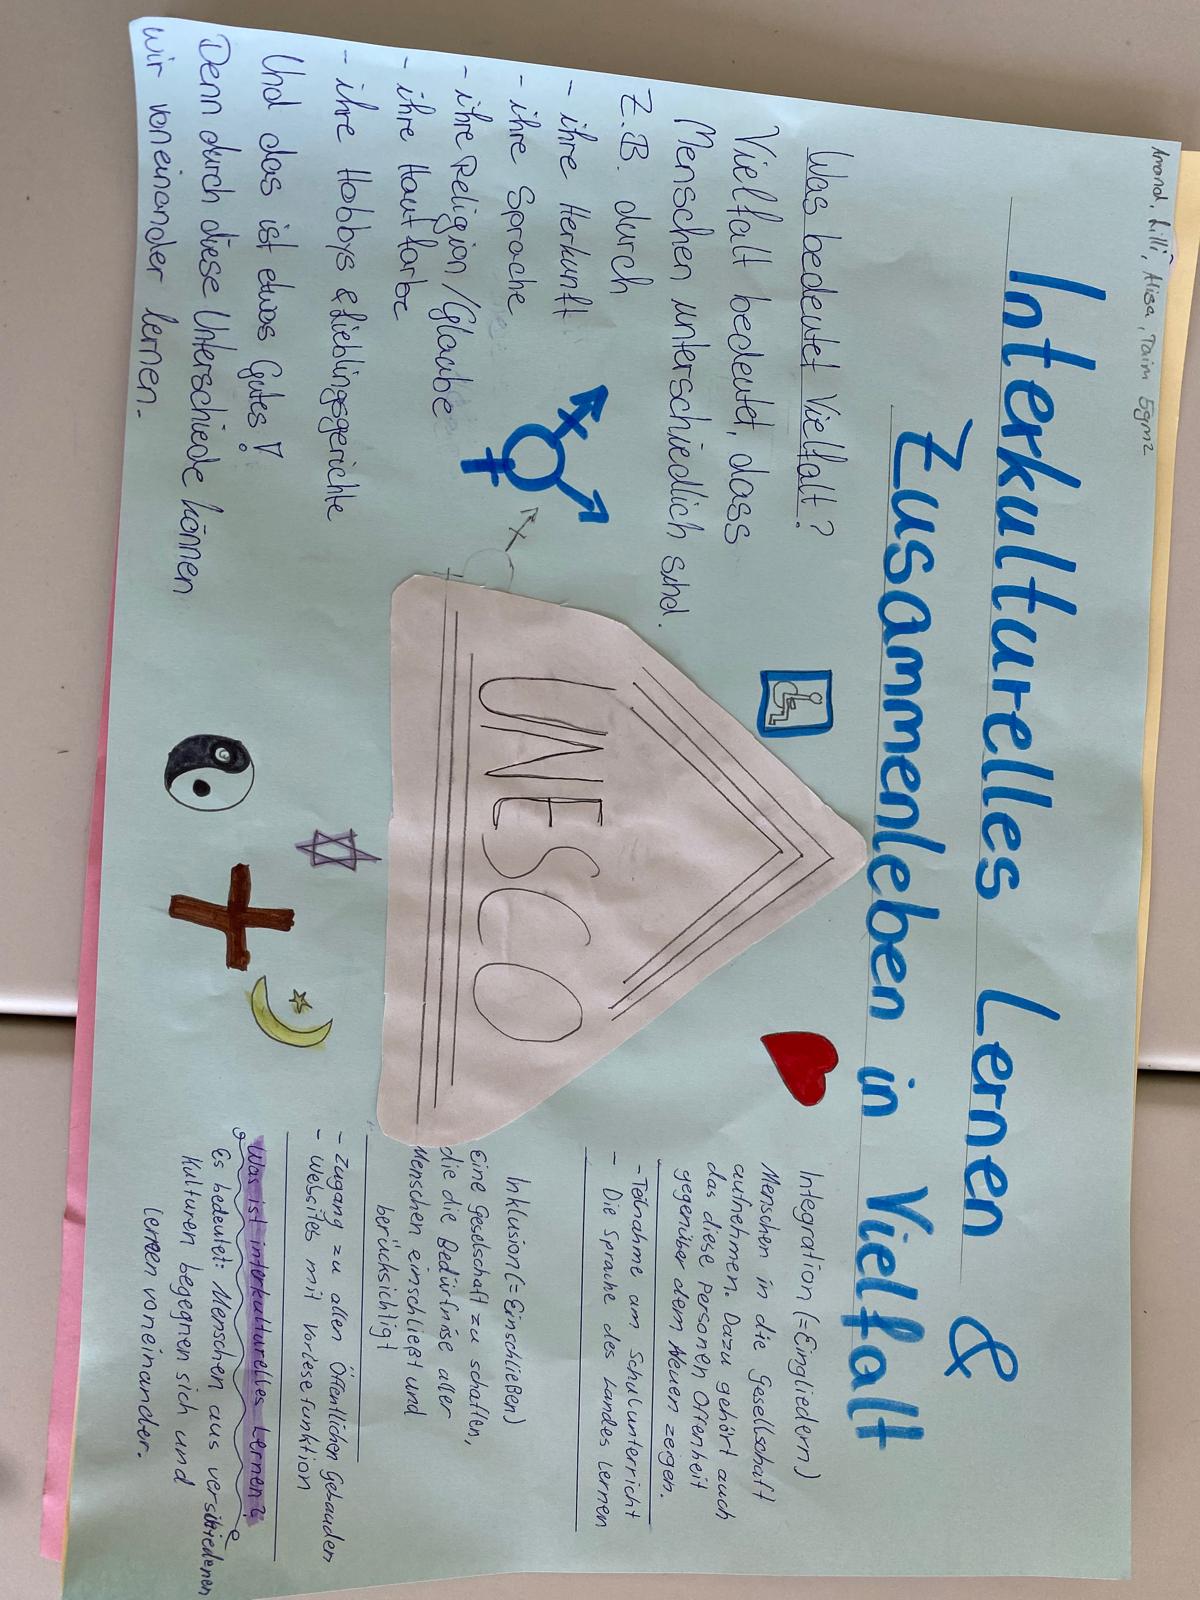 Amond, Lilli, Alisa, Taim 5gm2
Interkulturelles Lernen &
Zusammenleben in Vielfalt
Was bedeutet Vielfalt?
Vielfalt bedeutet, dass
Menschen unterschiedlich sind.
Z.B. durch
- ihre Herkunft
- ihre Sprache
- ihre Religion/Glaube
- ihre Hautfarbe
- ihre Hobbys & Lieblingsgerichte
Und das ist etwas Gutes!
Denn durch diese Unterschiede können
wir voneinander lernen.
UNESCO
Integration (=Eingliedern)
Menschen in die Gesellschaft
aufnehmen. Dazu gehört auch
das diese Personen Offenheit
gegenüber dem Neuen zeigen.
- Teilnahme am Schulunterricht
- Die Sprache des Landes lernen
Inklusion (=Einschließen)
Eine Gesellschaft zu schaffen,
die die Bedürfnise aller
Menschen einschließt und
berücksichtigt
- Zugang zu allen Öffentlichen Gebäuden
- Websites mit Vorlesefunktion
Was ist interkulturelles Lernen?
Es bedeutet: Menschen aus verschiedenen
Kulturen begegnen sich und
lernen voneinander.